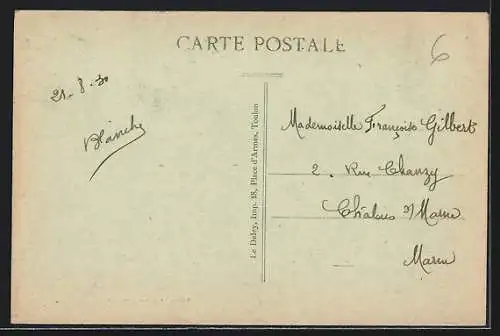 CARTE POSTALE
6
21.8.30
Blanche
Le Deley, Imp. 18, Place d'Armes, Toulon
Mademoiselle Françoise Gilbert
2. Rue Chanzy
Châlons s/ Marne
Marne